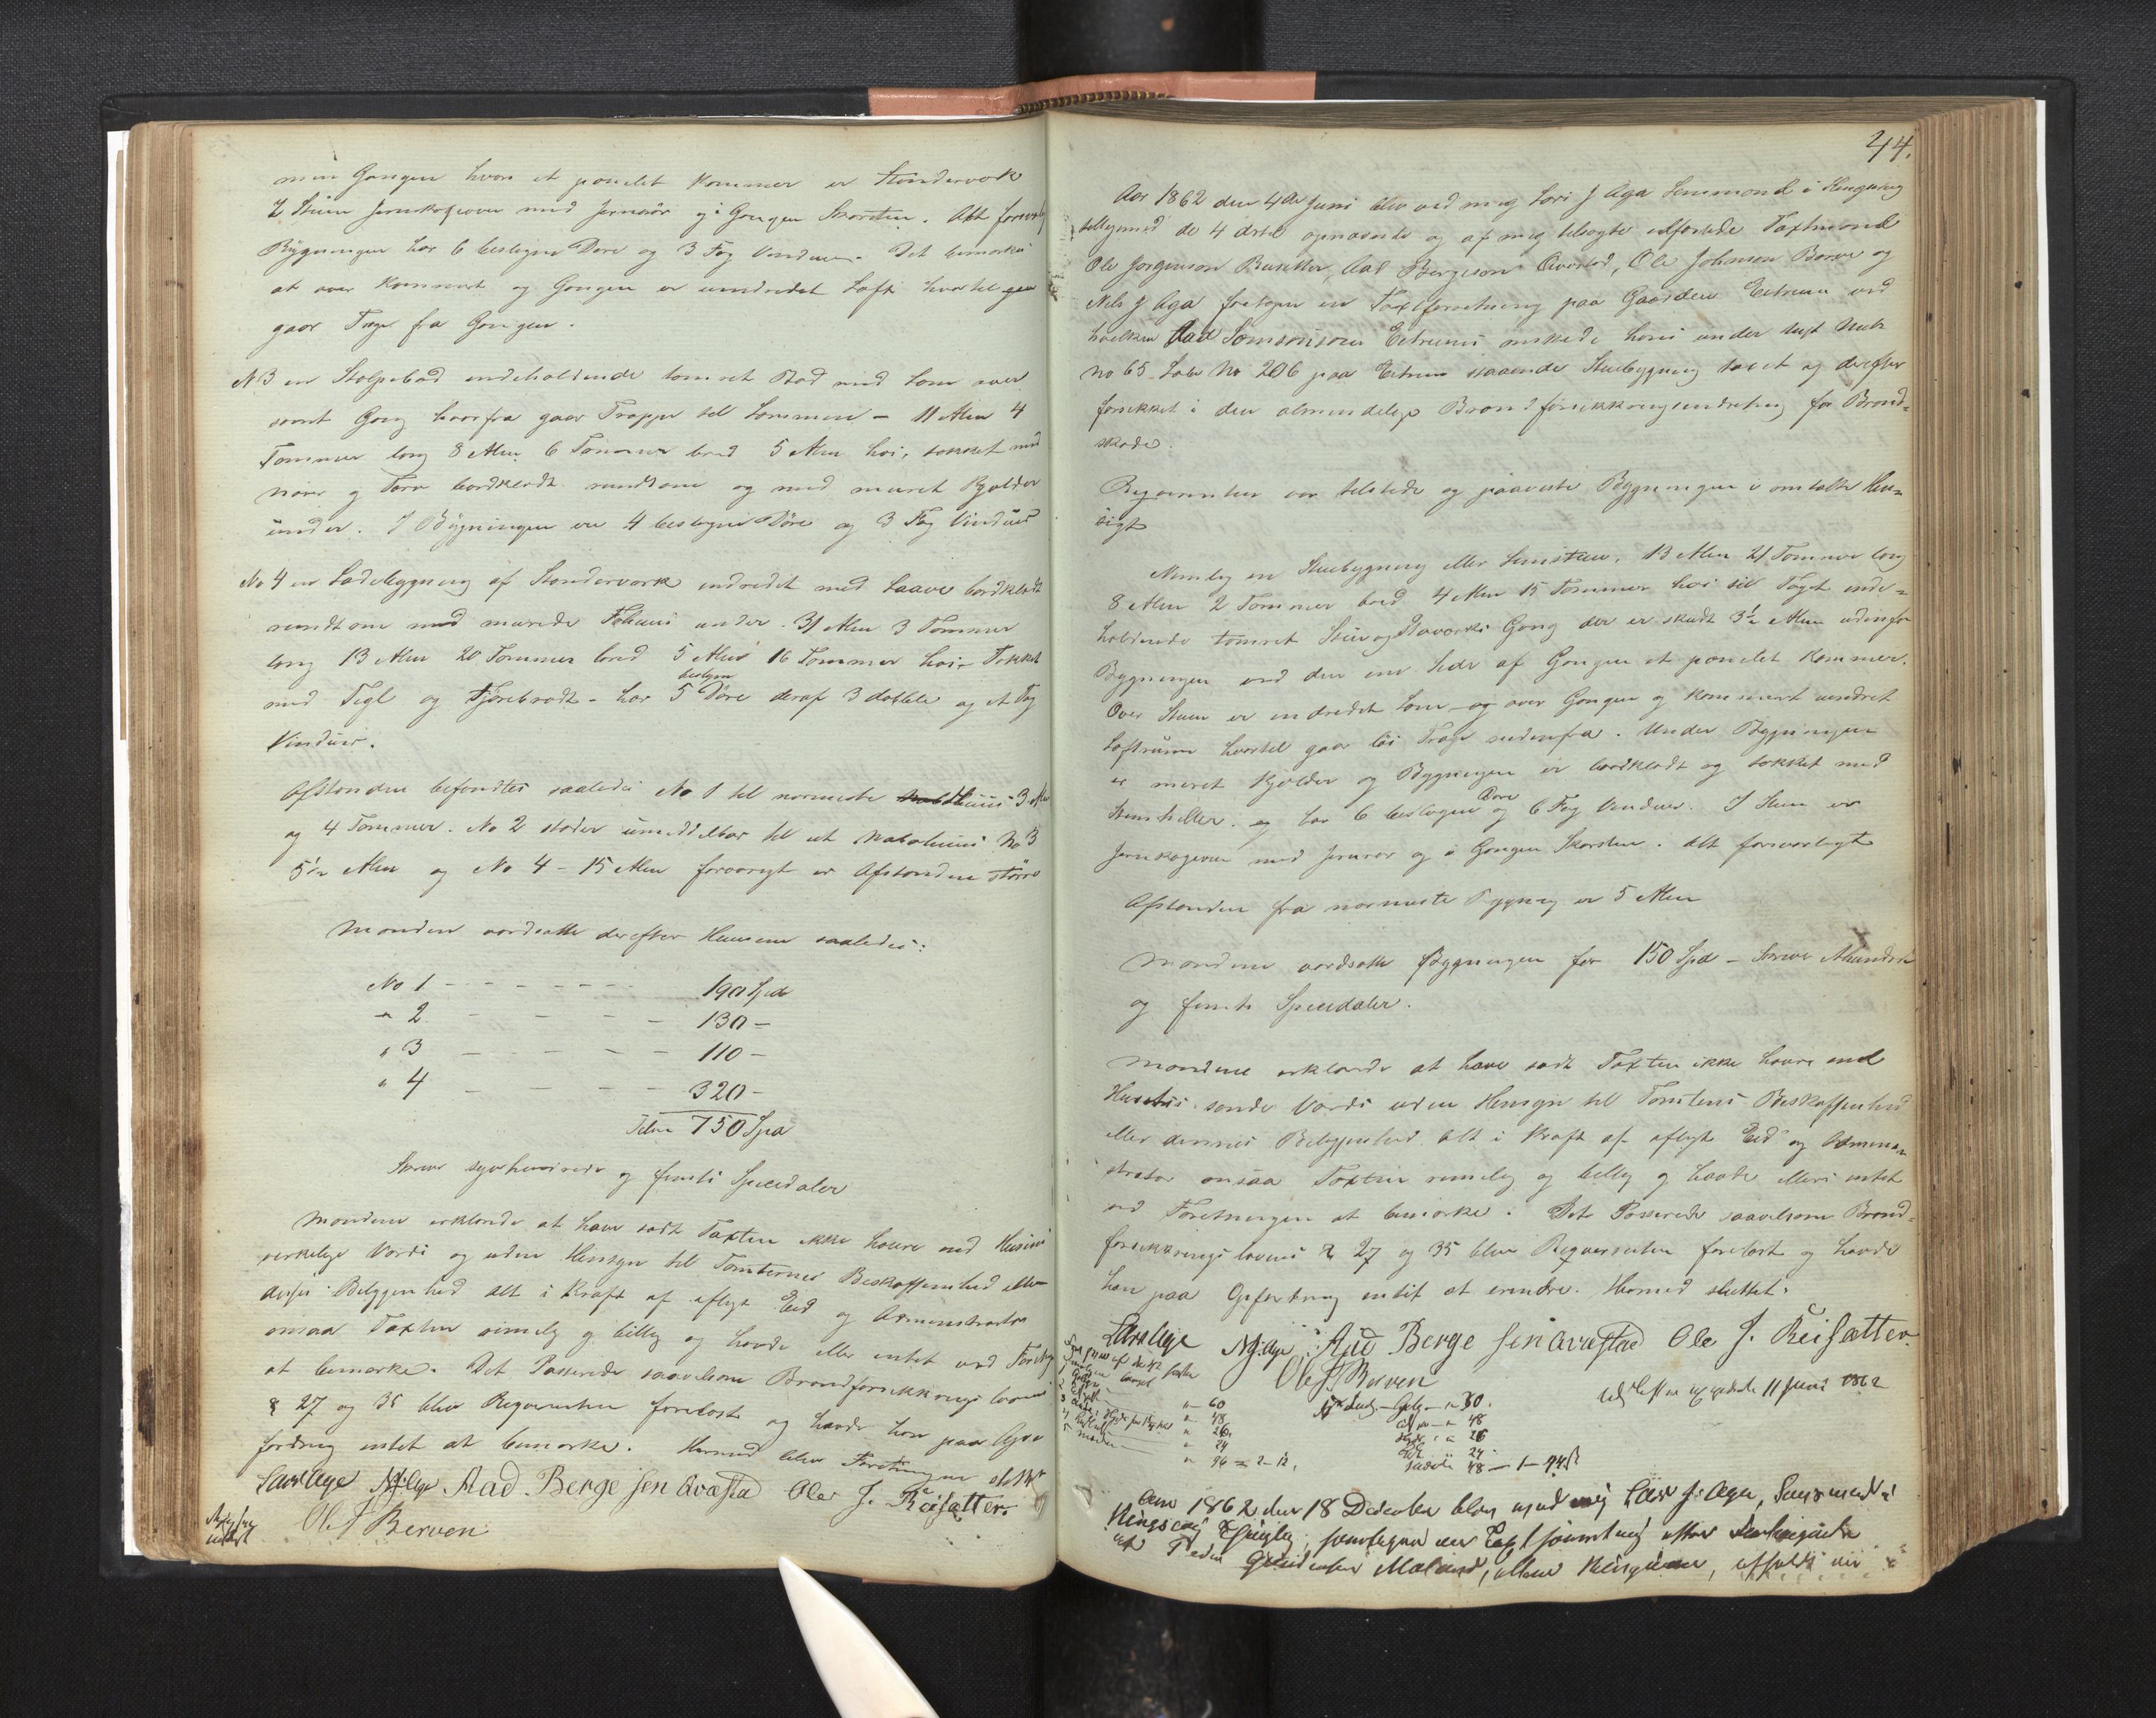 men Gangen hvori et panelet Kammer er Stenderværk
I Stuen Jernkogeovn med Jernrör og i Gangen Skorsten. Alt forsvarl
Bygningen har 6 beslagne Døre og 3 Fag Vinduer. Det bemærkes
at over Kammeret og Gangen er indredet Loft hvortil
gaar Trap fra Gangen.
No 3 en Stolpebod indeholdende tømret Bod med Lem over
samt Gang hvorfra gaar Trappe til Lemmen - 11 Alen 4
Tommer lang 8 Alen 6 Tommer bred 5 Alen høi, tækket med
Næver og Torv bordklædt rundtom og med muret Kjelder
under. I Bÿgningen er 4 beslagne Døre og 3 Fag Vinduer
No 4 en Ladebygning af Stenderværk indredet med Laave bordklædt
rundtom med murede Fæhuus under. 31 Alen 3 Tommer
lang 13 Alen 20 Tommer bred 5 Alen 16 Tommer høi - Tækket
med Tegl og Tjørebredt - har 5 beslagne Døre deraf 3 dobbelte og et Fag
Vindues.
Afstanden befandtes saaledes No 1 til nærmeste 3 Alen
og 4 Tommer. No 2 støder umiddelbar til et Nabohuus No 3
5½ Alen og No 4 - 15 Alen forøvrigt er Afstanden større
Mændene værdsatte derefter Husene saaledes:
No 1 - - - - - - - 190 Spd
" 2 - - - - - 130 -
" 3 - - - - - 110 -
" 4 - - - - - 320 -
750 Spd
Skriver syvhundrede og femti Speciedaler
Mændene erklærede at have sadt Taxten ikke høiere end Husenes
virkelige Værdi og uden Hensyn til Tomternes Beskaffenhed eller
disses Beliggenhed alt i Kraft af aflagt Eed og
ansaa Taxten rimelig og billig og havde eller intet ved
at bemærke. Det Passerede saavelsom Brandforsikkrings lovens
§ 27 og 35 blev Reqvirenten forelæst og havde han paa Op
fordring intet at bemærke. Hermed blev Forretningen sluttet
Lars Aga NJ Aga Aad Berge sen Qvæstad Ole J. Reisætter.
Ole J Berven
44.
Aar 1862 den 4de Juni blev ved mig Lars J Aga Lensmand i Kingservig
tilligemed de 4 dertil opnævnte og af mig tilsagte edfæstede Taxtmænd
Ole Jørgenson Reisetter, Aad Bergeson Qvæstad, Ole Johnson Berve og
Nils J Aga foretagen en Taxtforretning paa Gaarden Eitrem ved
hvilken Aad Samsonson Eitrems ønskede hans under Mat
No 65 Løbe No 206 paa Eitrem staaende Stuebygning taxeret og derefter
forsikkret i den almindelige Brandforsikkringsindretning for Brand=
skade.
Reqvirenten var tilstede og paaviste Bygningen i omtalte Hen=
sigt
Nemlig en Stuebygning eller Lemstue, 13 Alen 21 Tommer lang
8 Alen 2 Tommer bred 4 Alen 15 Tommer høi til Taget inde=
holdende tømret Stue og Stavværks Gang der er skudt 3½ Alen udenfor
Bygningen ved den ene Side af Gangen et panelet Kammer.
Over Stuen er indredet Lem og over Gangen og Kammeret indret
Loftrum hvortil gaar løs Trap indenfra. Under Bygningen
er muret Kjelder og Bygningen er bordklædt og tækket med
Steenheller og har 6 beslagne Døre og 6 Fag Vinduer. I Stuen er
Jernkogeovn med Jernrør og i Gangen Skorsten. Alt forsvarligt
Afstanden fra nærmeste Bygning er 5 Alen
Mændene værdsatte Bygningen for 150 Spd - Skriver Ethundrede
og femti Speciedaler.
Mændene erklærede at have sadt Taxten ikke høiere end
Husets sande Værdi uden Hensyn til Tomtens Beskaffenhed
eller dennes Beliggenhed alt i Kraft af aflagt Eed og Admini
strator ansaa Taxten rimelig og billig og havde ellers intet
ved Forretningen at bemærke. Det Passerede saavelsom Brand=
forsikkrings lovens § 27 og 35 blev Reqvirenten forelæst og havde
han paa Opfordring intet at erindre. Hermed sluttet.
Lars Aga NJ Aga Aad Berge sen Qvæstad Ole J. Reisætter
Ole J Berven
11 Juni 1862
" 60
" 48
" 26
" 24
" 96 = 2 - 12.
30.
48
26
24
48 - 1 - 44 ß
Aar 1862 den 18 December blev ved mig Lars J. Aga, Lensmand i
Kingservig Thinglag, foretagen en Taxtforretning efter Forlangende
af Peder Maland,